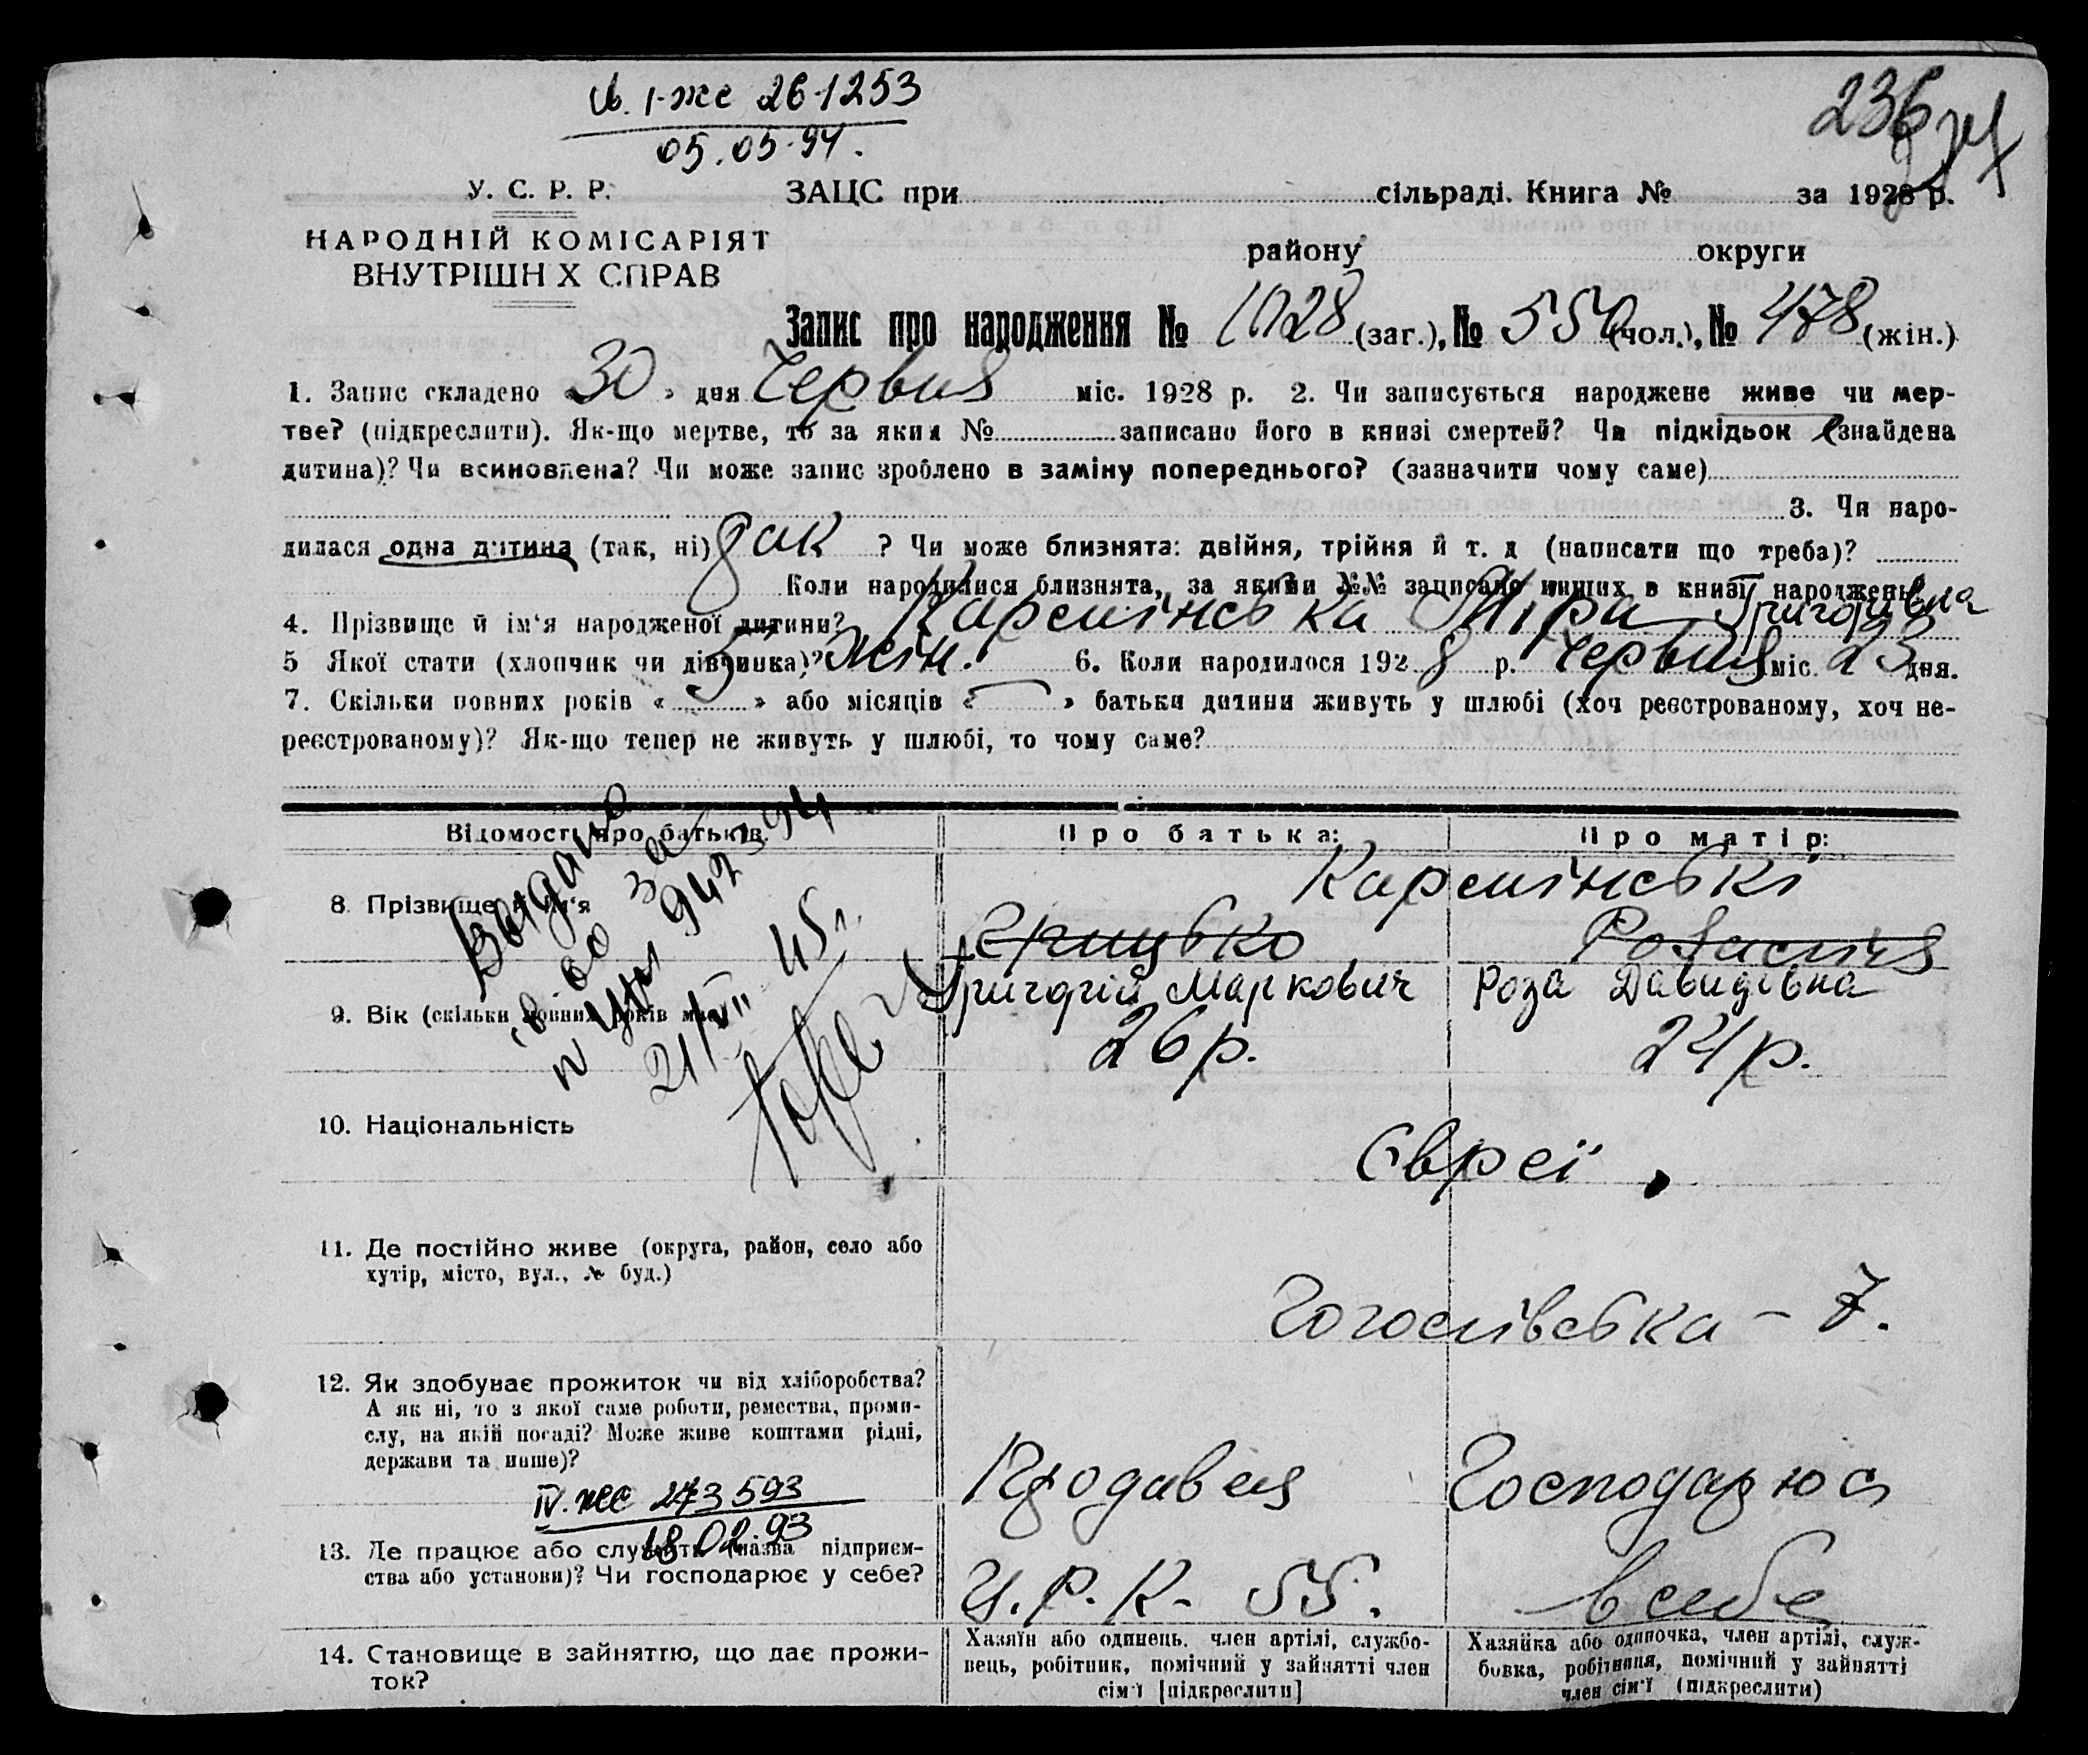 І-же 261253
05.05.94.
236
У. С. Р. Р.
ЗАЦС при сільраді. Книга № за 1928 р.
НАРОДНІЙ КОМІСАРІЯТ
ВНУТРІШН Х СПРАВ
району округи
Запис про народження № 1028 (заг.), № 550 (чол.), № 478 (жін.)
1. Запис складено «30» дня Червня міс. 1928 р. 2. Чи записується народжене живе чи мер-
тве? (підкреслити). Як-що мертве, то за яким № записано його в книзі смертей? Чи підкідьок (знайдена
дитина)? Чи всиновлена? Чи може запис зроблено в заміну попереднього? (зазначити чому саме)
3. Чи наро-
дилася одна дитина (так, ні) так ? Чи може близнята: двійня, трійня й т. д (написати що треба)?
Коли народилися близнята, за якими №№ записано инших в книзі народжень?
4. Прізвище й ім‘я народженої дитини? Карпинська Міра Григорівна
5 Якої стати (хлопчик чи дівчинка)? Жін. 6. Коли народилося 1928 р. Червня міс. 23 дня.
7. Скільки повних років « 5 » або місяців « — » батьки дитини живуть у шлюбі (хоч реєстрованому, хоч не-
реєстрованому)? Як-що тепер не живуть у шлюбі, то чому саме?
Відомості про батьків. Про батька: Про матір:
8. Прізвище й ім‘я
Грицько
Григорій Маркович Роза Давидівна
9. Вік (скільки повних років має) 26 р. 24 р.
Выдано
21/VII 45 г.
10. Національність Євреї.
11. Де постійно живе (округа, район, село або
хутір, місто, вул., № буд.)
7.
12. Як здобуває прожиток чи від хліборобства?
А як ні, то з якої саме роботи, ремества, проми-
слу, на якій посаді? Може живе коштами рідні,
держави та инше)?
Продавця Господарює
IV-же 273593
18.02.93
13. Де працює або служить (назва підприєм-
ства або установи)? Чи господарює у себе?
Ц.Р.К- 55. в себе
14. Становище в зайняттю, що дає прожи-
ток?
Хазяїн або одинець, член артілі, службо-
вець, робітник, помічний у зайнятті член
сім‘ї [підкреслити]
Хазяйка або одиночка, член артілі, служ-
бовка, робітниця, помічний у зайнятті
член сім‘ї (підкреслити)